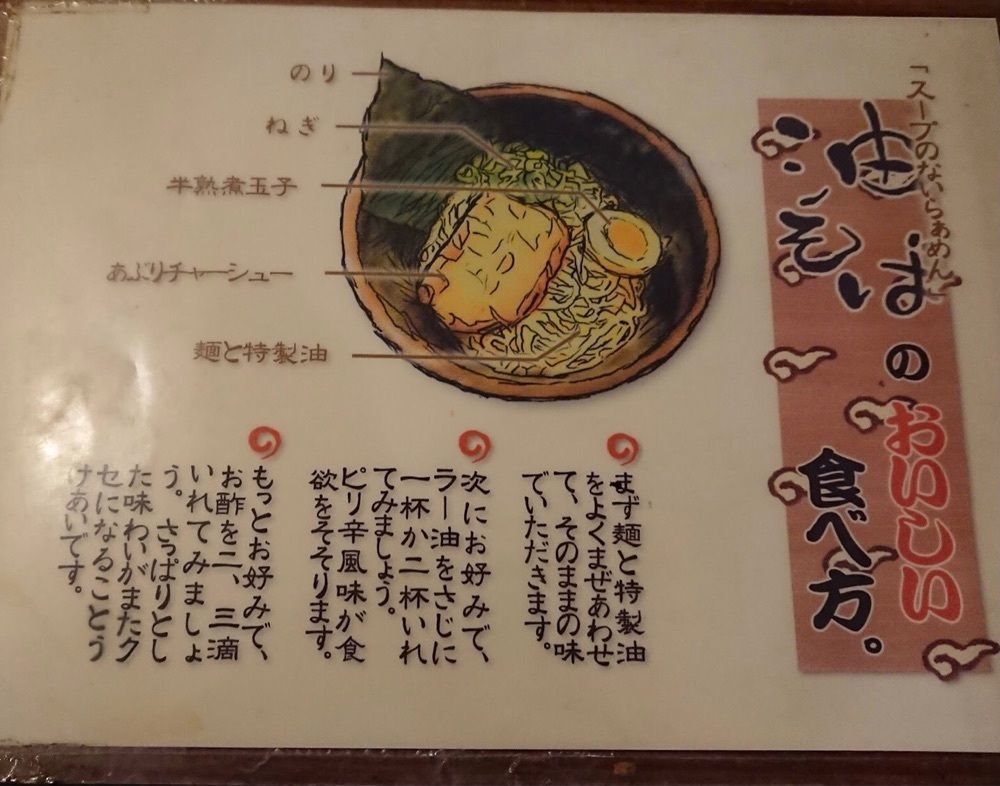 「スープのないらぁめん」
油そばの
おいしい
食べ方。
のり
ねぎ
半熟煮玉子
あぶりチャーシュー
麺と特製油
まず麺と特製油
をよくまぜあわせ
て、そのままの味
でいただきます。
次にお好みで、
ラー油をさじに
一杯か二杯いれ
てみましょう。
ピリ辛風味が食
欲をそそります。
もっとお好みで、
お酢を二、三滴
いれてみましょ
う。さっぱりとし
た味わいがまたク
セになることう
けあいです。